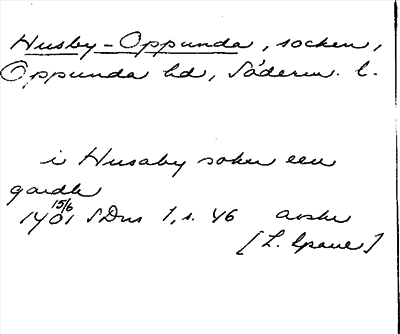 Husby-Oppunda, socken,
Oppunda hd, Söderm. l.
i Husaby sokn een
gardh
15/6
1401 SDns 1, s. 46 avskr
[L. Spaue]